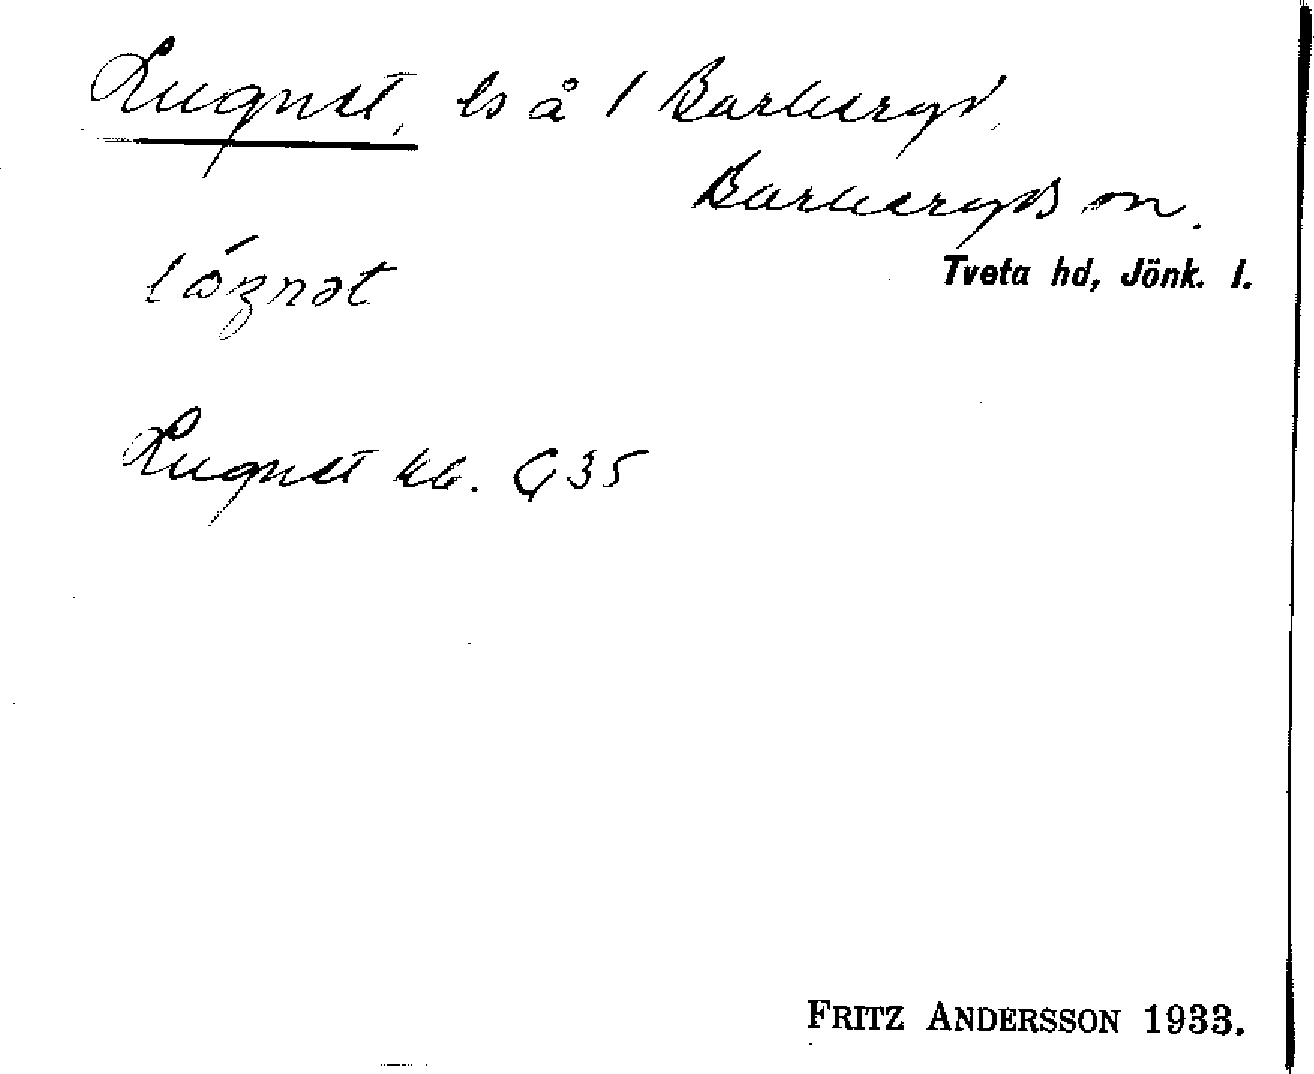 Lugnet, ls å 1 Barkeryd,
Barkeryds sn.
Tveta hd, Jönk. l.
Lugnet kb. Ç 35
FRITZ ANDERSSON 1933.